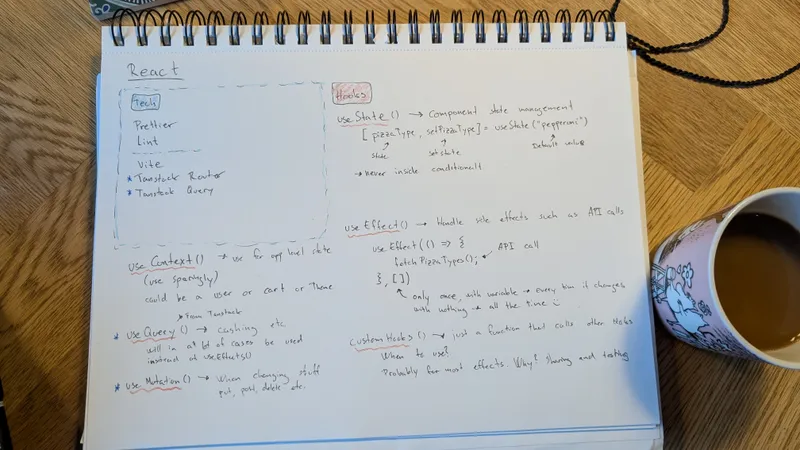 React
Tech
Prettier
Lint
Vite
* Tanstack Router
* Tanstack Query
useContext() → use for app level state
(use sparingly)
could be a user or cart or Theme
↗ From Tanstack
* useQuery() → cashing etc.
will in a lot of cases be used
instead of useEffects()
* useMutation() → When changing stuff
put, post, delete etc.
Hooks
useState() → Component state management
[pizzaType, setPizzaType] = useState("pepperoni")
state setstate Default value
→ never inside conditional!
useEffect() → Handle side effects such as API calls
useEffect(() => {
fetchPizzaTypes(); ← API call
}, [])
only once, with variable → every time it changes
with nothing → all the time
Custom Hooks() → just a function that calls other Hooks
When to use?
Probably for most effects. Why? Sharing and testing